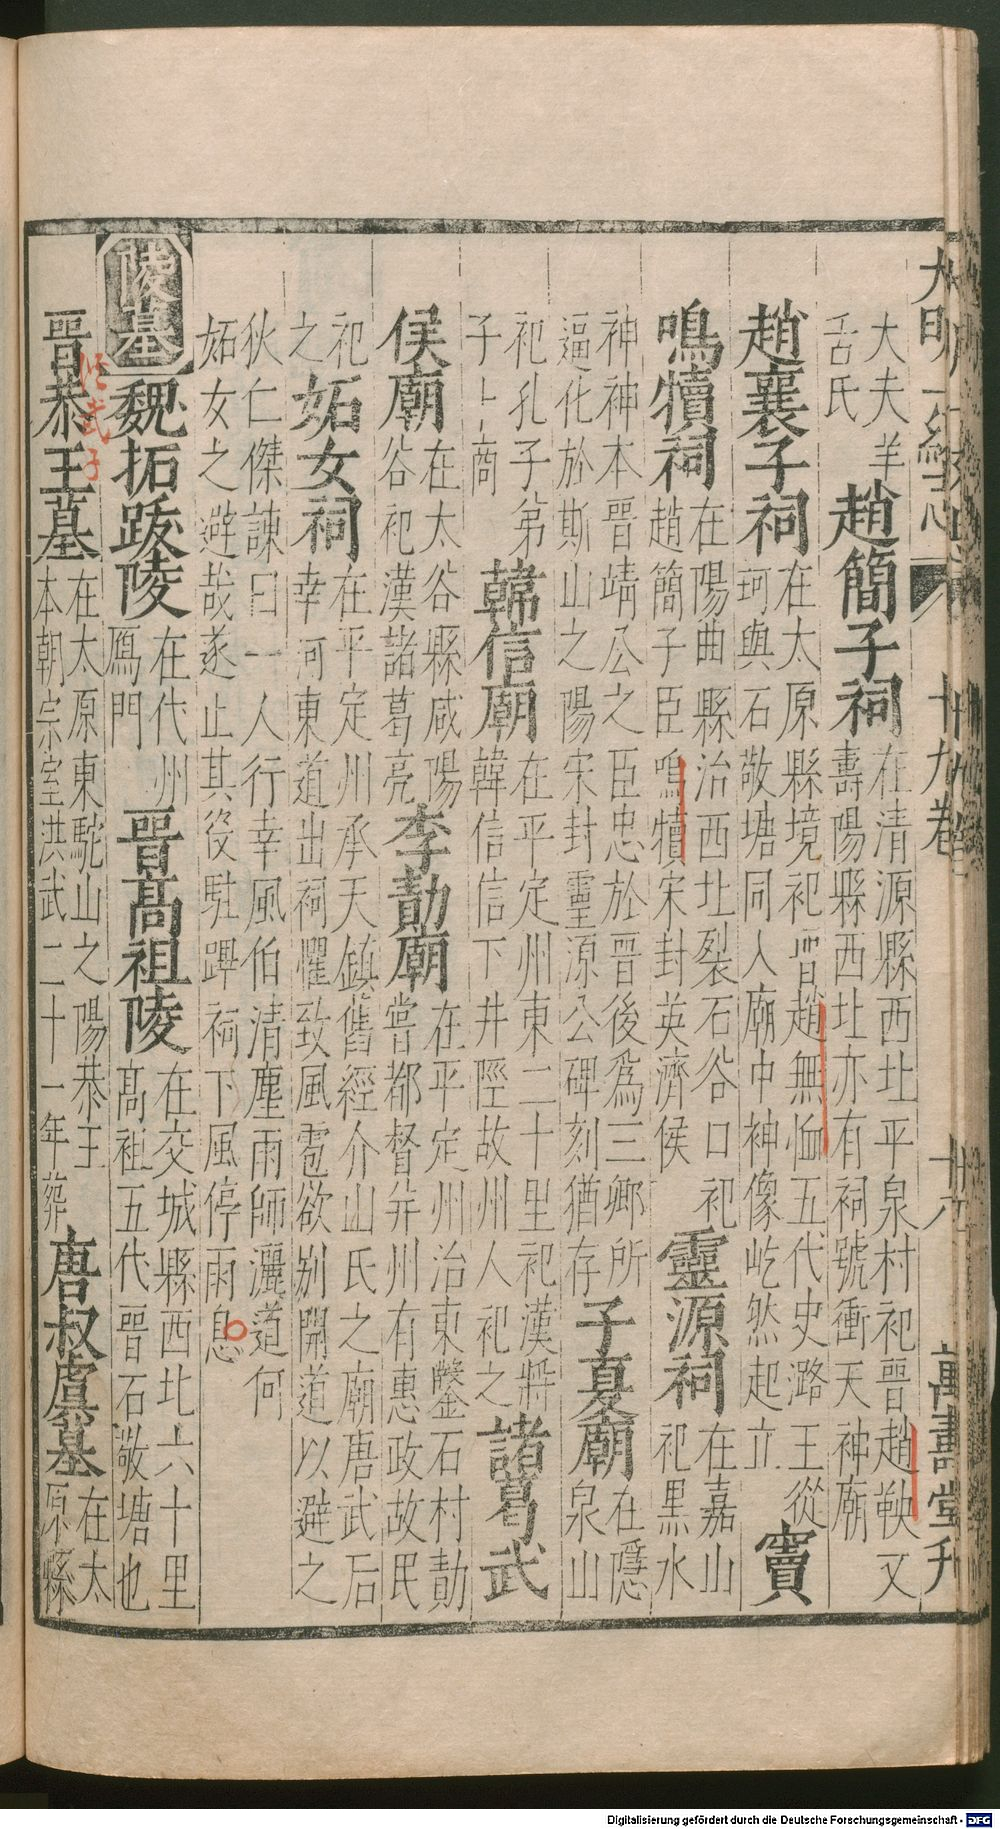 大明一統志 十九卷 萬壽堂刊
大夫羊
舌氏
趙簡子祠
在清源縣西北平泉村祀晉趙鞅又
壽陽縣西北亦有祠號衝天神廟
趙襄子祠
在太原縣境祀晉趙無恤五代史潞王從
珂與石敬塘同人廟中神像屹然起立
竇
鳴犢祠
在陽曲縣治西北裂石谷口祀
趙簡子臣鳴犢宋封英濟侯
靈源祠
在嘉山
祀黑水
神神本晉靖公之臣忠於晉後爲三卿所
逼化於斯山之陽宋封靈源公碑刻猶存
子夏廟
在隱
泉山
祀孔子弟
子卜商
韓信廟
在平定州東二十里祀漢將
韓信信下井陘故州人祀之
諸葛武
侯廟
在太谷縣咸陽
谷祀漢諸葛亮
李勣廟
在平定州治東鑿石村勣
嘗都督并州有惠政故民
祀
之
妬女祠
在平定州承天鎮舊經介山氏之廟唐武后
幸河東道出祠懼致風雹欲别開道以避之
狄仁傑諫曰一人行幸風伯清塵雨師灑道何
妬女之避哉遂止其役駐蹕祠下風停雨息
陵墓
魏拓跋陵
在代州
鴈門
晉高祖陵
在交城縣西北六十里
高祖五代晉石敬塘也
晉恭王墓
在太原東駝山之陽恭王
本朝宗室洪武二十一年葬
唐叔虞墓
在太
原縣
Digitalisierung gefördert durch die Deutsche Forschungsgemeinschaft - DFG